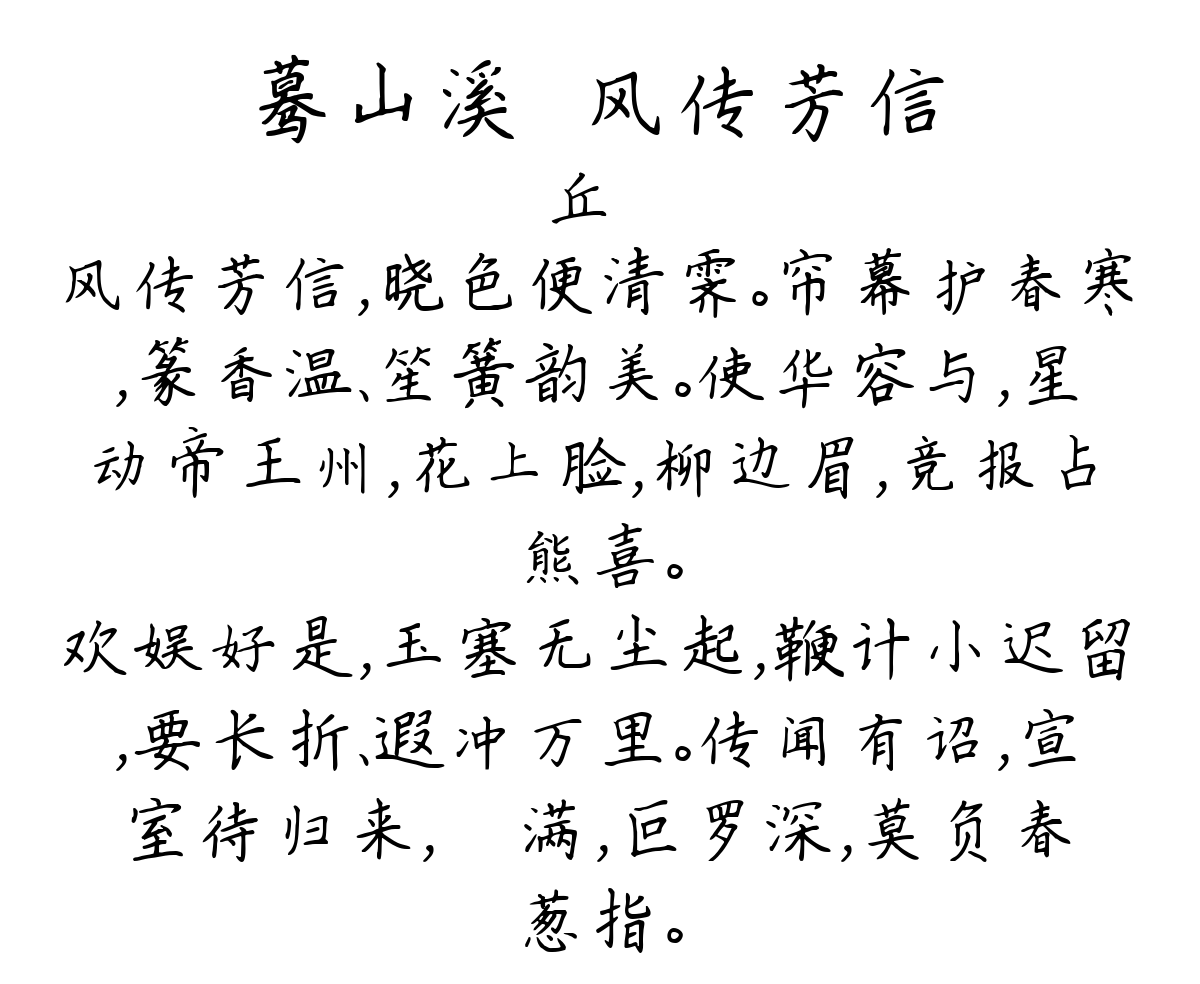 蓦山溪 风传芳信
丘
风传芳信,晓色便清霁。帘幕护春寒
,篆香温、笙簧韵美。使华容与,星
动帝王州,花上脸,柳边眉,竞报占
熊喜。
欢娱好是,玉塞无尘起,鞭计小迟留
,要长折、遐冲万里。传闻有诏,宣
室待归来, 满,叵罗深,莫负春
葱指。